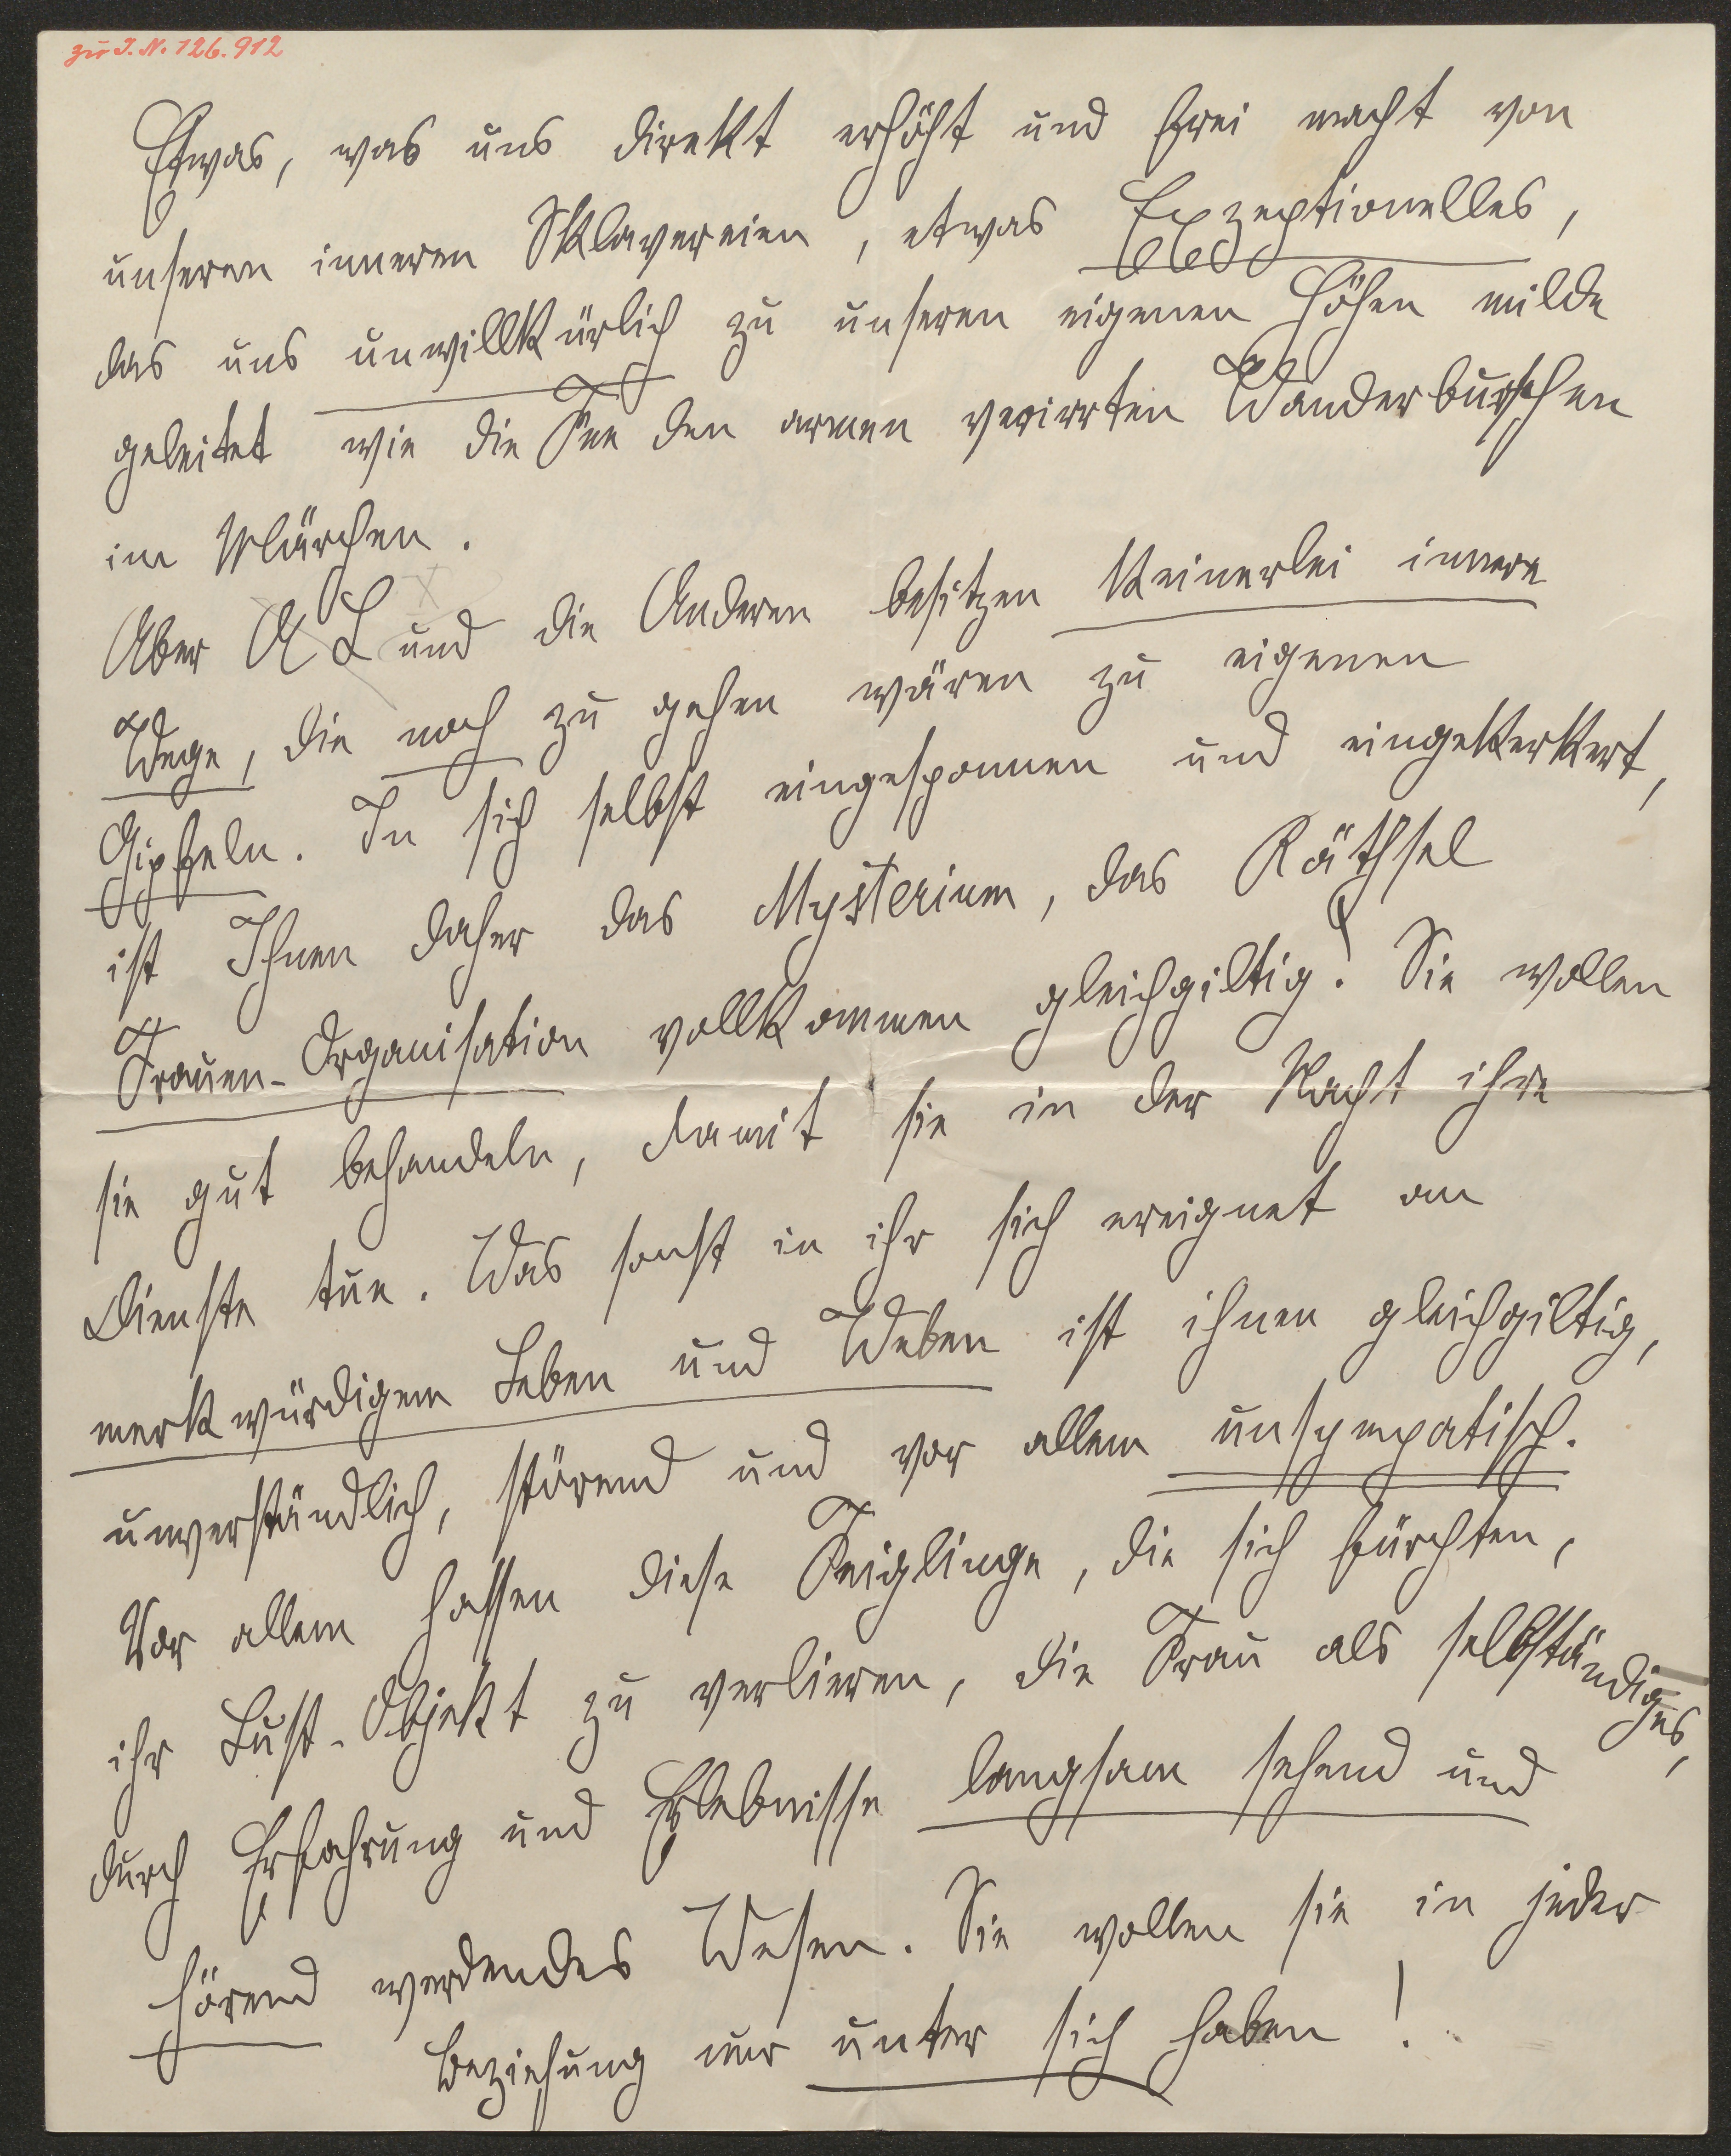 zu I. N. 126.912
Etwas, was uns direkt erhöht und frei macht von
unseren inneren Sklavereien, etwas Exzeptionelles,
das uns unwillkürlich zu unseren eigenen Höhen milde
geleitet wie die Fee den armen verirrten Wanderburschen
im Märchen.
Aber A L und die Anderen besitzen keinerlei innere
Wege, die noch zu gehen wären zu eigenen
Gipfeln. In sich selbst eingesponnen und eingekerkert,
ist Ihnen daher das Mysterium, das Räthsel
Frauen-Organisation vollkommen gleichgiltig! Sie wollen
sie gut behandeln, damit sie in der Nacht ihre
Dienste tue. Was sonst in ihr sich ereignet an
merkwürdigem Leben und Weben ist ihnen gleichgiltig,
unverständlich, störend und vor allem unsympatisch.
Vor allem hassen diese Feiglinge, die sich fürchten,
ihr Lust-Objekt zu verlieren, die Frau als selbständiges,
durch Erfahrung und Erlebnisse langsam sehend und
hörend werdendes Wesen. Sie wollen sie in jeder
Beziehung nur unter sich haben!